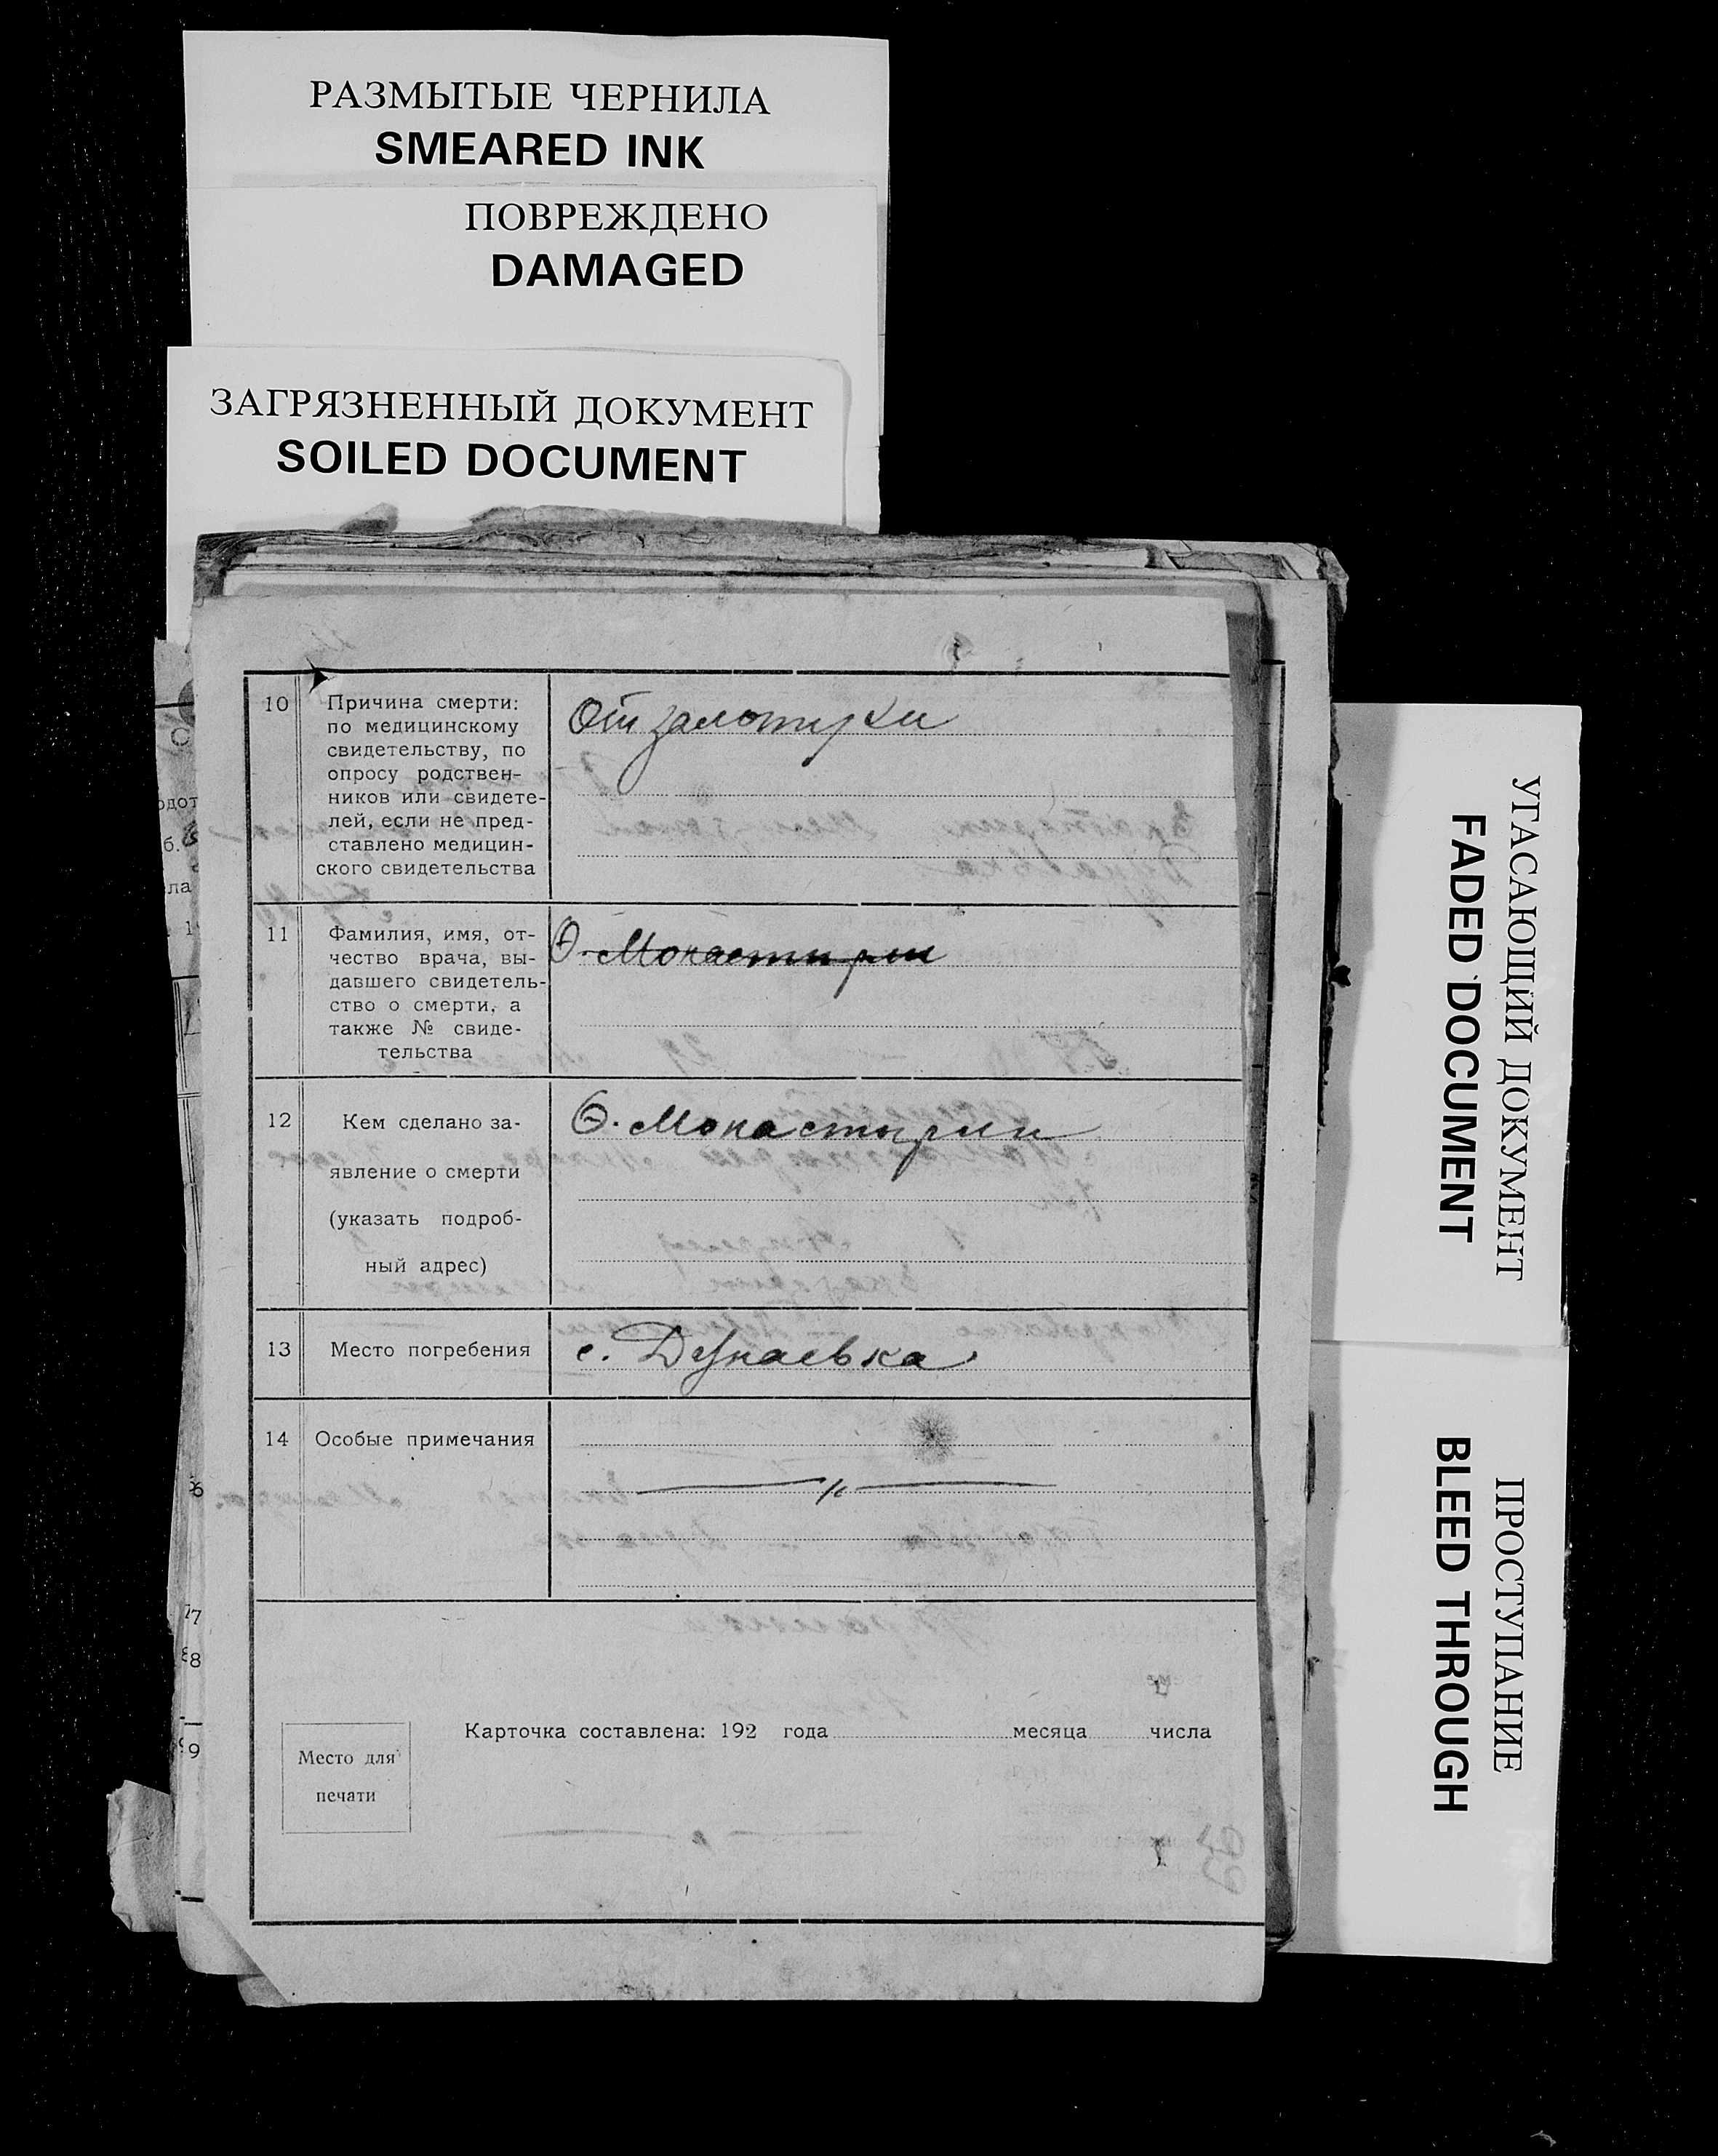 РАЗМЫТЫЕ ЧЕРНИЛА
SMEARED INK
ПОВРЕЖДЕНО
DAMAGED
ЗАГРЯЗНЕННЫЙ ДОКУМЕНТ
SOILED DOCUMENT
10
Причина смерти:
по медицинскому
свидетельству, по
опросу родствен-
ников или свидете-
лей, если не пред-
ставлено медицин-
ского свидетельства
От золотухи
11
Фамилия, имя, от-
чество врача, вы-
давшего свидетель-
ство о смерти, а
также № свиде-
тельства
Ѳ. Монастырли
12
Кем сделано за-
явление о смерти
(указать подроб-
ный адрес)
Ѳ. Монастырли
13
Место погребения
с. Дунаевка
14
Особые примечания
Карточка составлена: 192 года месяца числа
Место для
печати
УГАСАЮЩИЙ ДОКУМЕНТ
FADED DOCUMENT
ПРОСТУПАНИЕ
BLEED THROUGH